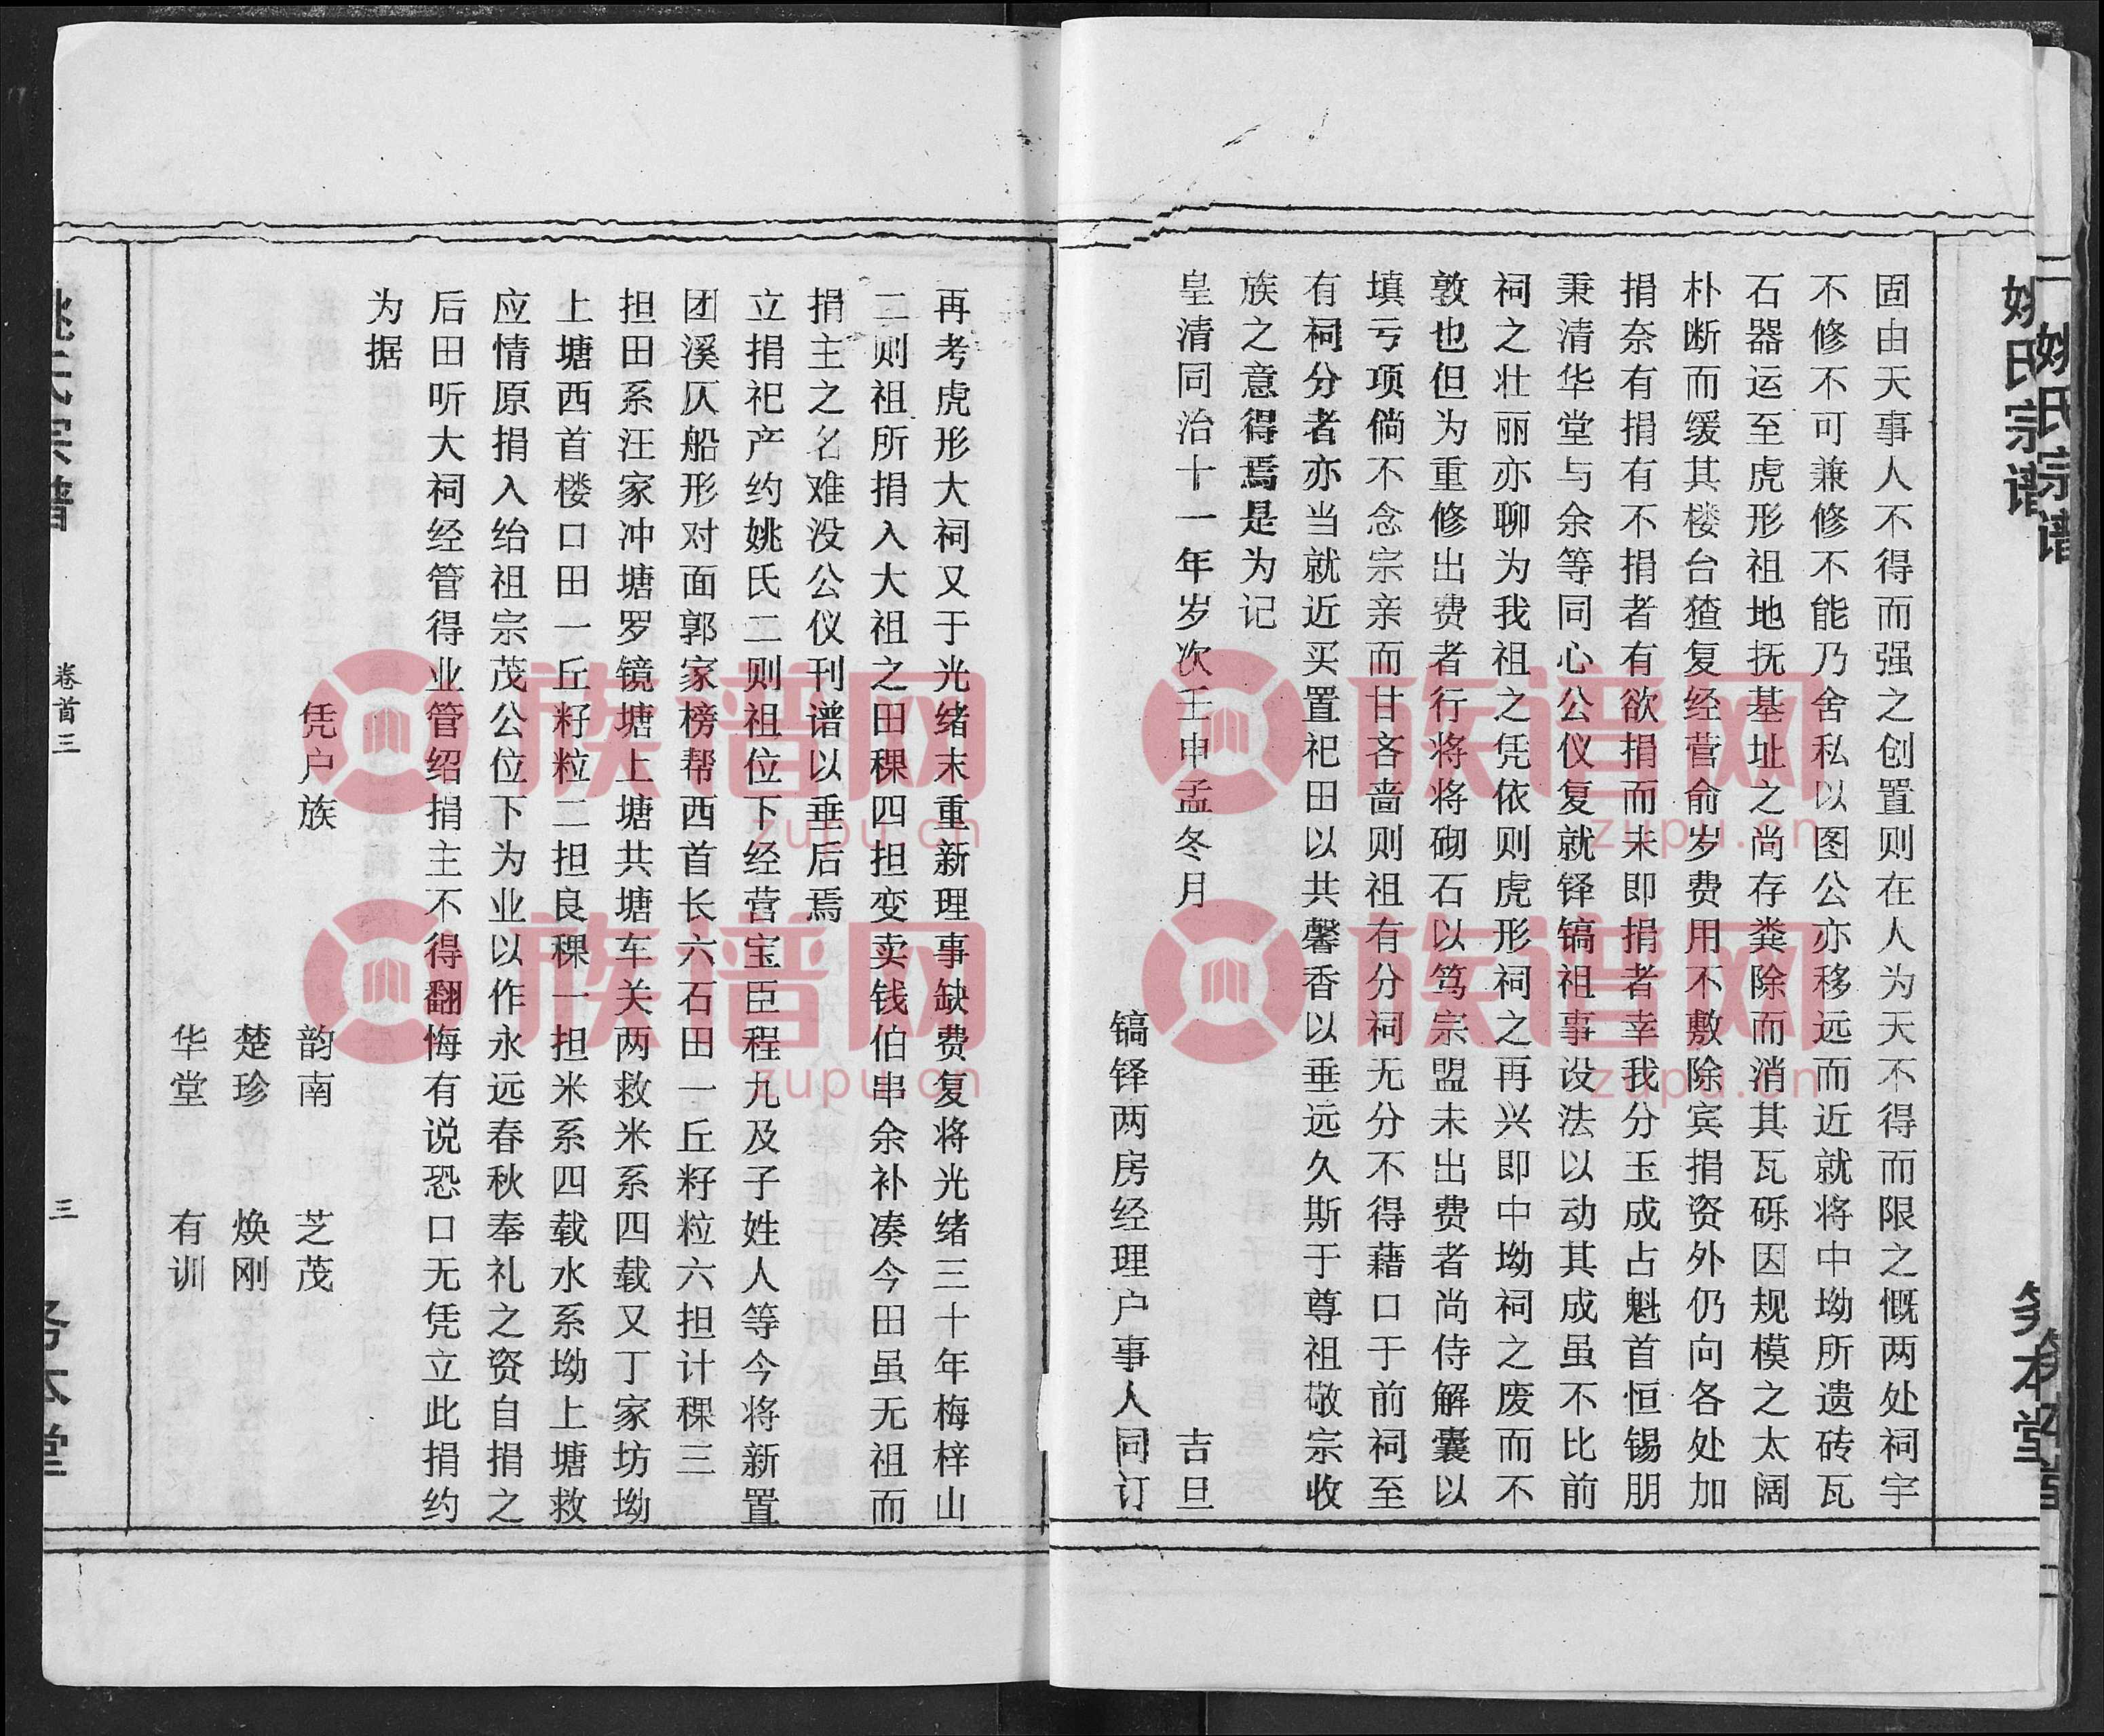 姚氏宗谱
务本堂
姚氏宗谱
固由天事人不得而强之创置则在人为天不得而限之慨两处祠宇
不修不可兼修不能乃舍私以图公亦移远而近就将中坳所遗砖瓦
石器运至虎形祖地抚基址之尚存粪除而消其瓦砾因规模之太阔
朴断而缓其楼台猹复经营俞岁费用不敷除宾捐资外仍向各处加
捐奈有捐有不捐者有欲捐而未即捐者幸我分玉成占魁首恒锡朋
秉清华堂与余等同心公仪复就铎镐祖事设法以动其成虽不比前
祠之壮丽亦聊为我祖之凭依则虎形祠之再兴即中坳祠之废而不
敦也但为重修出费者行将将砌石以笃宗盟未出费者尚侍解囊以
填亏项倘不念宗亲而甘吝啬则祖有分祠无分不得藉口于前祠至
有祠分者亦当就近买置祀田以共馨香以垂远久斯于尊祖敬宗收
族之意得焉是为记
皇清同治十一年岁次壬申孟冬月 吉旦
镐铎两房经理户事人同订
再考虎形大祠又于光绪末重新理事缺费复将光绪三十年梅梓山
二则祖所捐入大祖之田稞四担变卖钱伯串余补凑今田虽无祖而
捐主之名难没公仪刊谱以垂后焉
立捐祀产约姚氏二则祖位下经营宝臣程九及子姓人等今将新置
团溪仄船形对面郭家榜帮西首长六石田一丘籽粒六担计稞三
担田系汪家冲塘罗镜塘上塘共塘车关两救米系四载又丁家坊坳
上塘西首楼口田一丘籽粒二担良稞一担米系四载水系坳上塘救
应情原捐入给祖宗茂公位下为业以作永远春秋奉礼之资自捐之
后田听大祠经管得业管绍捐主不得翻悔有说恐口无凭立此捐约
为据
凭户族 韵南 芝茂
楚珍 焕刚
华堂 有训
卷首三
三